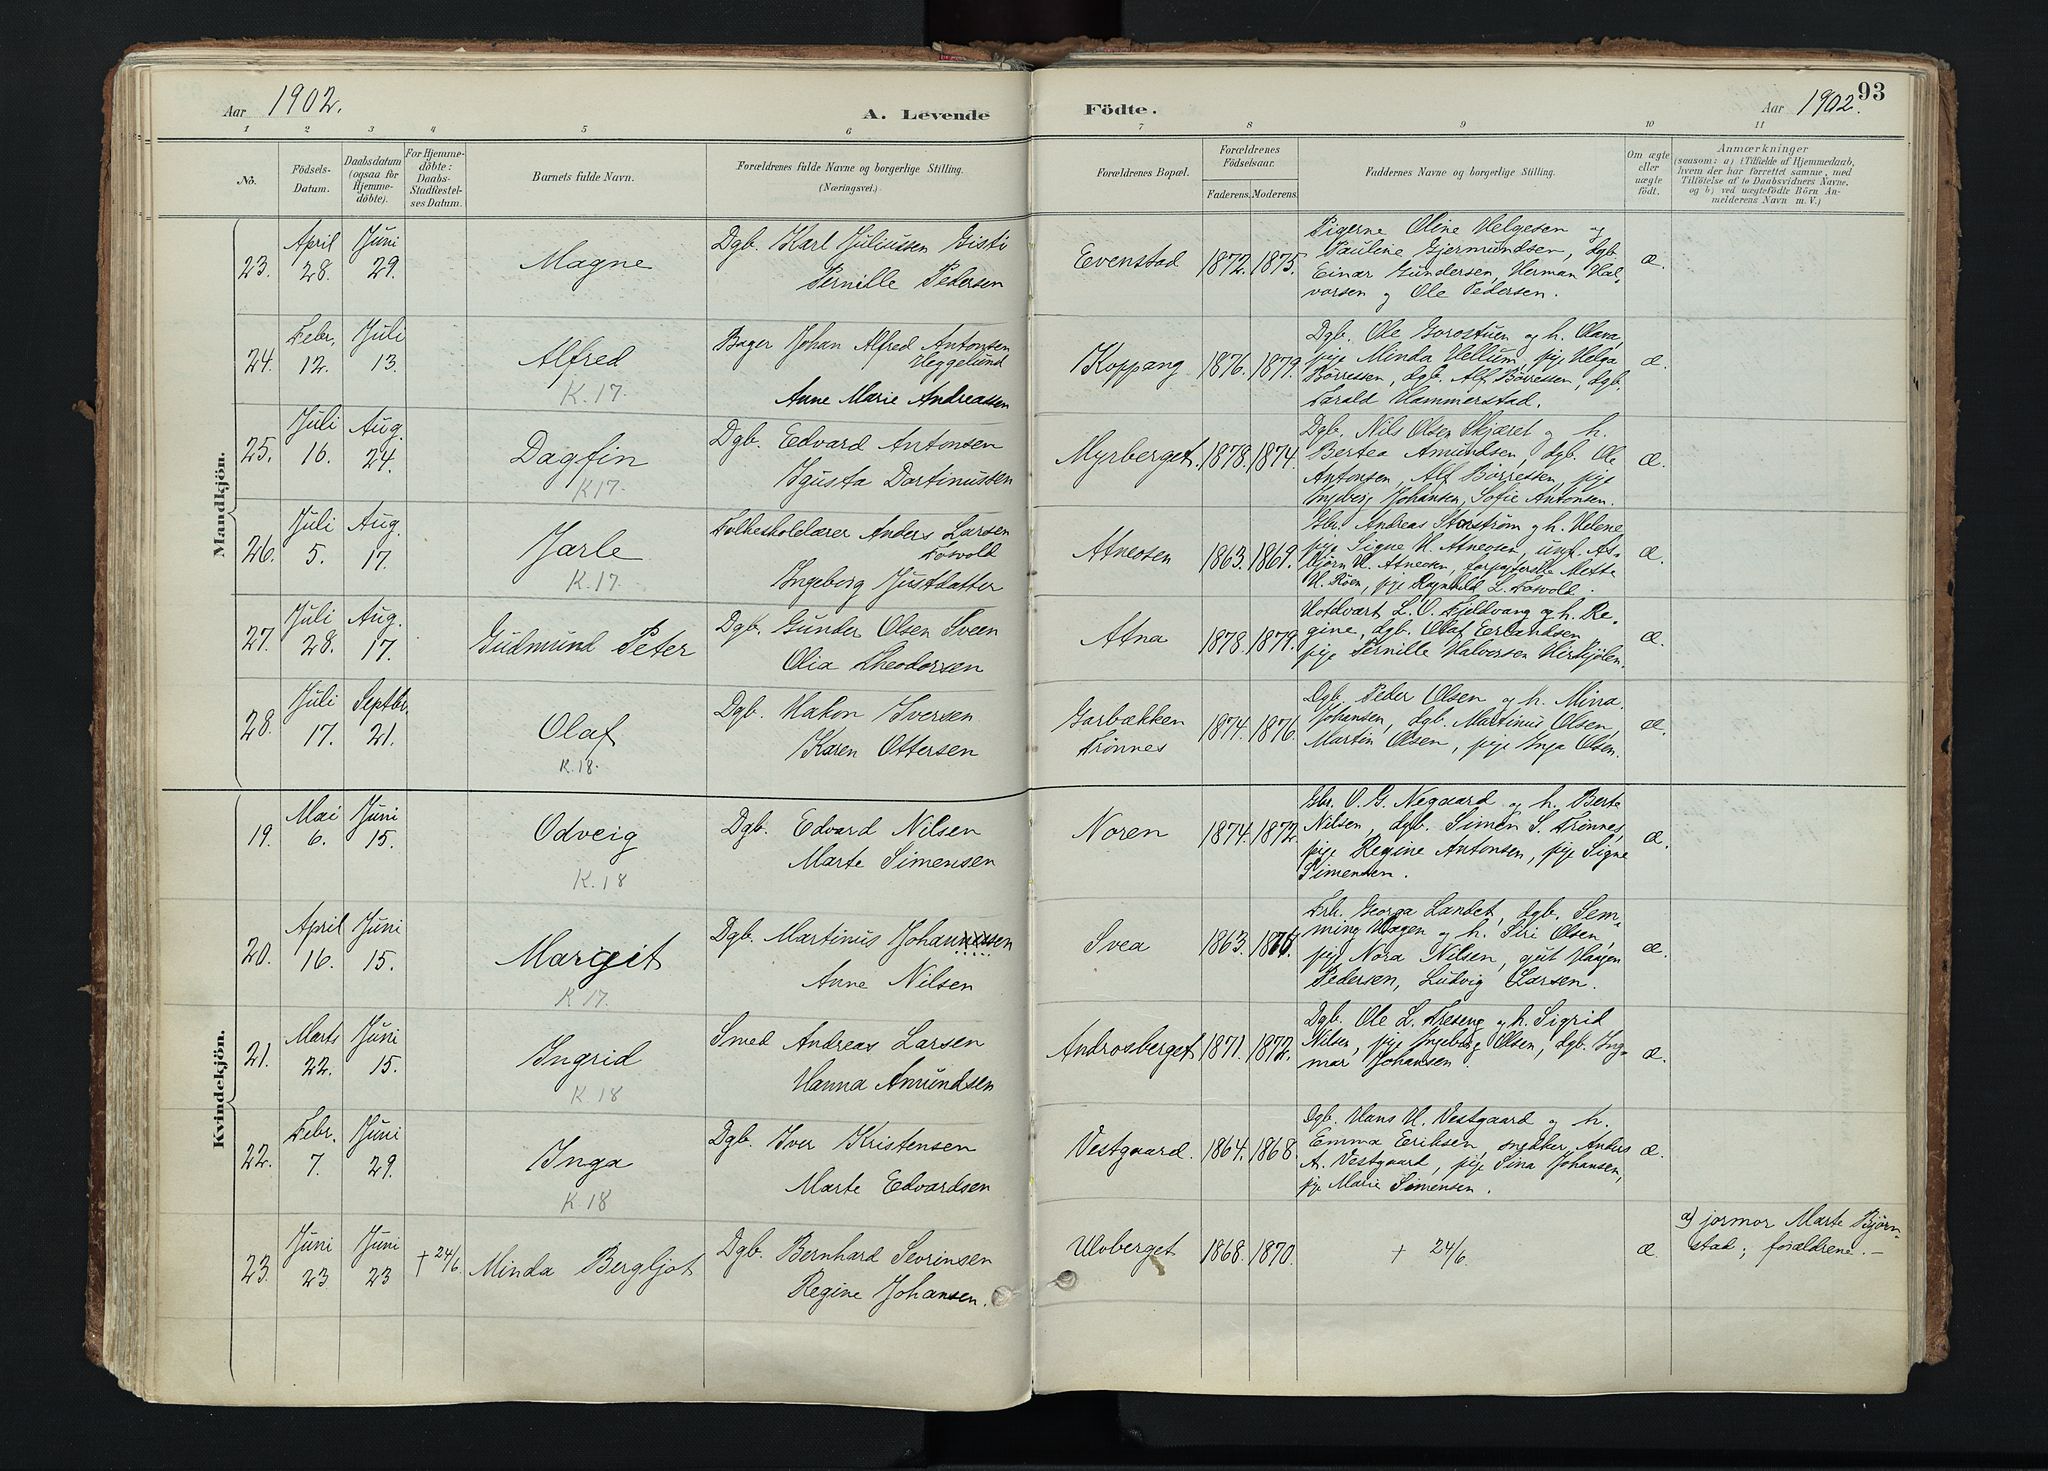 Aar 1902.
A. Levende Födte.
Aar 1902.
93
1 2 3 4 5 6 7 8 9 10 11
No.
Födsels-Datum.
Daabsdatum (ogsaa for Hjemmedöbte).
For Hjemmedöbte: Daabs-Stadfæstelses Datum.
Barnets fulde Navn.
Forældrenes fulde Navne og borgerlige Stilling. (Næringsvei.)
Forældrenes Bopæl.
Forældrenes Födselsaar.
Faderens. Moderens.
Faddernes Navne og borgerlige Stilling.
Om ægte eller uægte födt.
Anmærkninger
(saasom: a) i Tilfælde af Hjemmedaab, hvem der har forrettet samme, med Tilföielse af to Daabsvidners Navne, og b) ved uegtefödte Börn Anmelderens Navn m. V.)
Mandkjön.
23. April 28. Juni 29. Magne
Dgb. Karl Juliussen Gisti
Pernille Pedersen
Evenstad 1872. 1875.
Pigerne Oline Helgesen og
Pauline Gjermundsen, dgb.
Einar Gundersen, Herman Hal-
vorsen og Ole Pedersen.
æ.
24. Febr. 12. Juli 13. Alfred
K. 17.
Bager Johan Alfred Antonsen
Heggelund
Anne Marie Andreassen
Koppang 1876. 1879.
Dgb. Ole Gorostuen og h. Olava,
pige Minda Hellum, pige Helga
Børressen, dgb. Alf Børressen, dgb.
Harald Hammerstad.
æ.
25. Juli 16. Aug. 24. Dagfin
K 17.
Dgb. Edvard Antonsen
Igusta Dortinussen
Myrberget. 1878. 1874.
Dgb. Nils Olsen Skjæret og h.
Bertea Amundsen, dgb. Ole
Antonsen, Alf Børressen, pige
Ingeborg Johansen, Sofie Antonsen.
æ.
26. Juli 5. Aug. 17. Jarle
K. 17
Folkeskolelærer Anders Larsen
Fosvold
Ingeborg Justdatter
Atneosen 1863. 1869.
Gbr. Andreas Storstrøm og h. Helene
pige Signe H. Atneosen, ungk. As-
bjørn H. Atneosen, Mette
H. Røen, pige Ragnhild L. Fosvold.
æ.
27. Juli 28. Aug. 17. Gudmund Peter
Dgb. Gunder Olsen Sveen
Olia Theodorsen
Atna 1878. 1879.
L. O. Fjeldvang og h. Re-
gine, dgb. Olaf Erlandsen
pige Pernille Halvorsen Hirkjølen.
æ.
28. Juli 17. Septbr. 21. Olaf
K. 18.
Dgb. Hakon Iversen
Karen Ottersen
Garbækken
Trønnes
1874. 1876.
Dgb. Peder Olsen og h. Mina
Johansen, dgb. Martinus Olsen,
Martin Olsen, pige Inga Olsen.
æ.
Kvindekjön.
19. Mai 6. Juni 15. Odveig
K. 18
Dgb. Edvard Nilsen
Marte Simensen
Noren 1874. 1872.
Gbr. O. G. Negaard og h. Berte
Nilsen, dgb. Simen S. Trønnes,
pige Regine Antonsen, pige Signe
Simensen.
æ.
20. April 16. Juni 15. Margit
K 17.
Dgb. Martinus Johannessen
Anne Nilsen
Svea 1863.
Georga Landet, dgb. Sem-
ming Hagen og h. Siri Olsen,
pige Nora Nilsen, gut Haagen
Pedersen, Ludvig Larsen.
æ.
21. Marts 22. Juni 15. Ingrid
K. 18
Smed Andreas Larsen
Hanna Amundsen
Androsberget 1871. 1872.
Dgb. Ole L. Træseng og h. Sigrid
Nilsen, pige Ingeborg Olsen, dgb. Ing-
mar Johansen.
æ.
22. Febr. 7. Juni 29. Inga
K. 18
Dgb. Iver Kristensen
Marte Edvardsen
Vestgaard. 1864. 1868.
Dgb. Hans H. Vestgaard og h.
Emma Eriksen, snekker Anders
A. Vestgaard, pige Sina Johansen,
pige Marie Simensen.
æ.
23. Juni 23 Juni 23 + 24/6 Minda Bergljot
Dgb. Bernhard Sevrinsen
Regine Johansen.
Ulvberget 1868. 1870.
+ 24/6.
æ.
a) jormor Marte Bjørn-
stad; forældrene. –